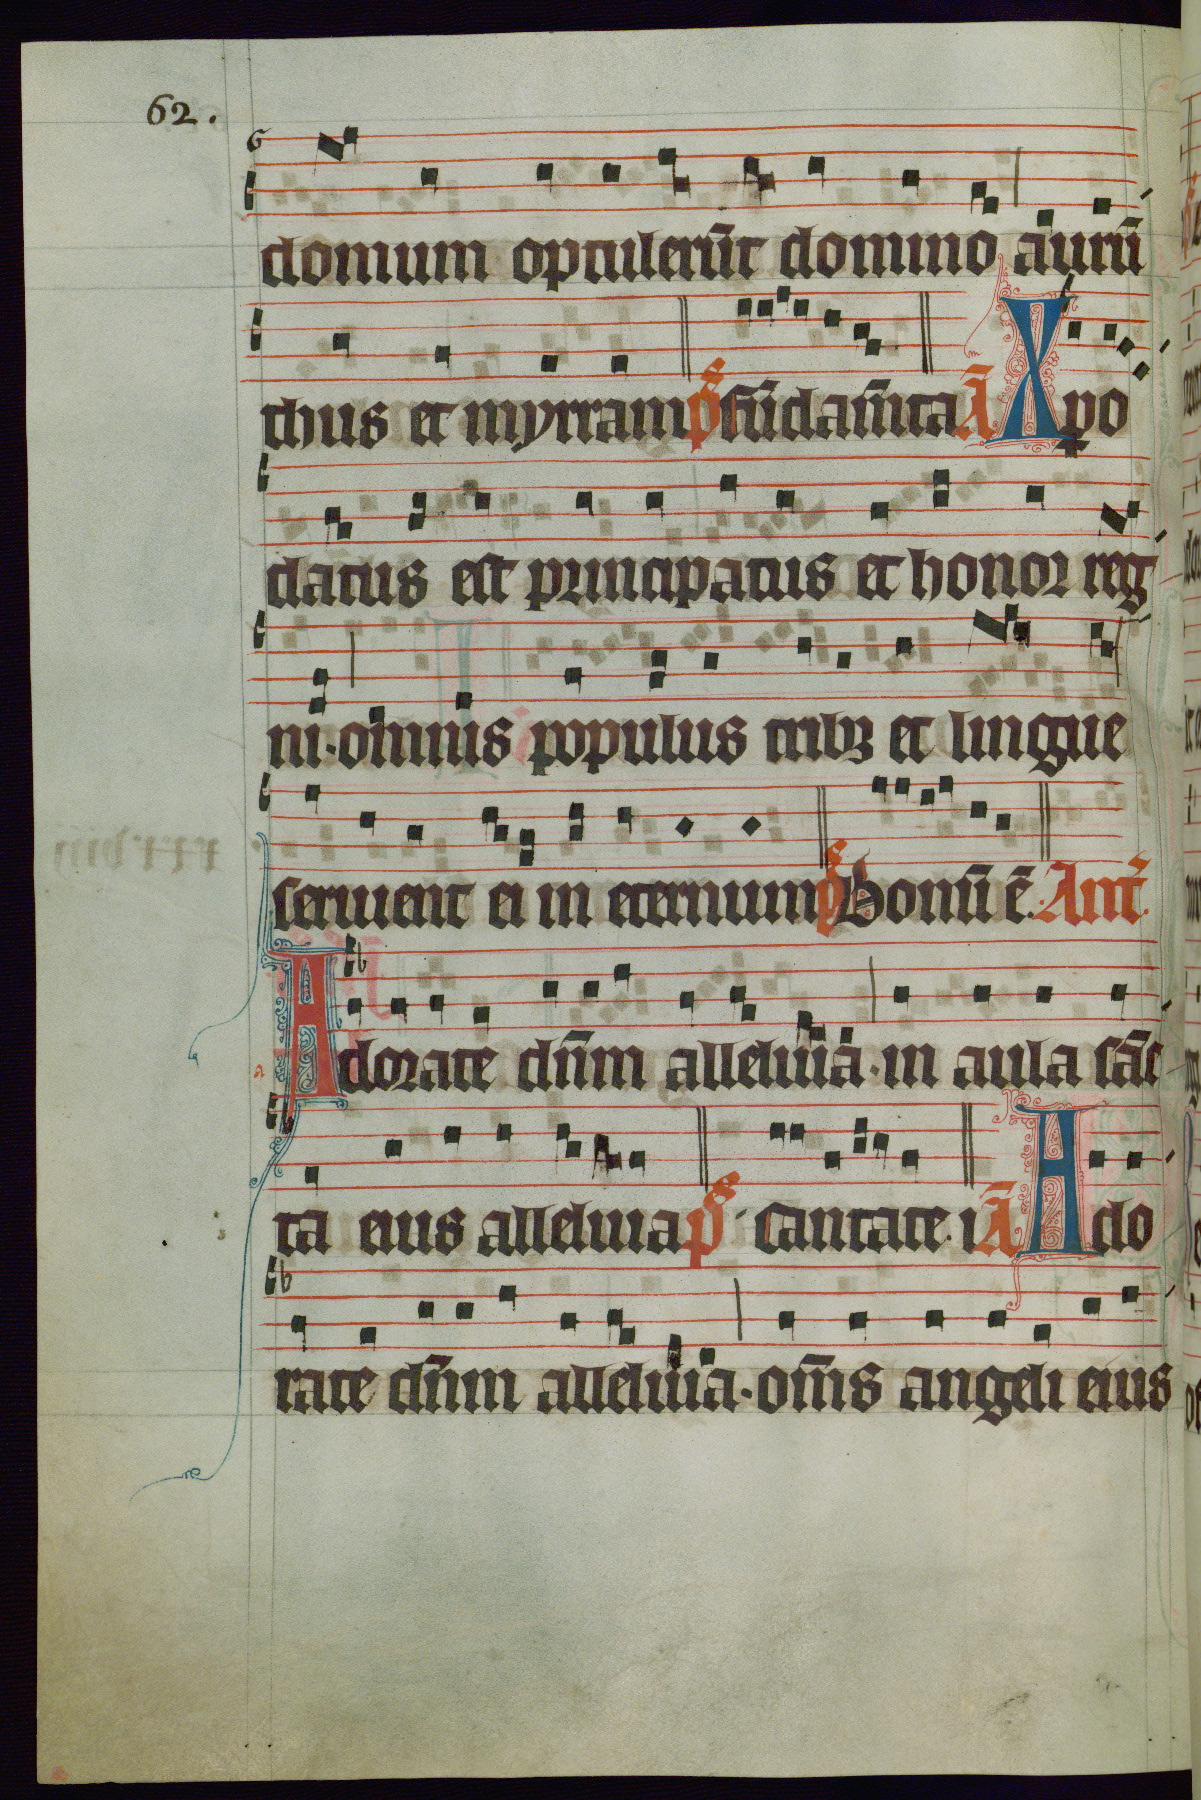 62.
G
domum optulerūt domino aurū
thus et myrram ps̄ fūdam̄ta Ā Xpo
datus est principatus et honor reg
ni · omnis popolus tribꝫ et lingue
seruient ei in eternum ps̄ Bonū ē. Ant̄.
b
Adorate dn̄m alleluia · in aula sāc
a
ta eius alleluia ps̄ · cantate. i Ā Ado
b
rate dn̄m alleluia · om̄s angeli eius